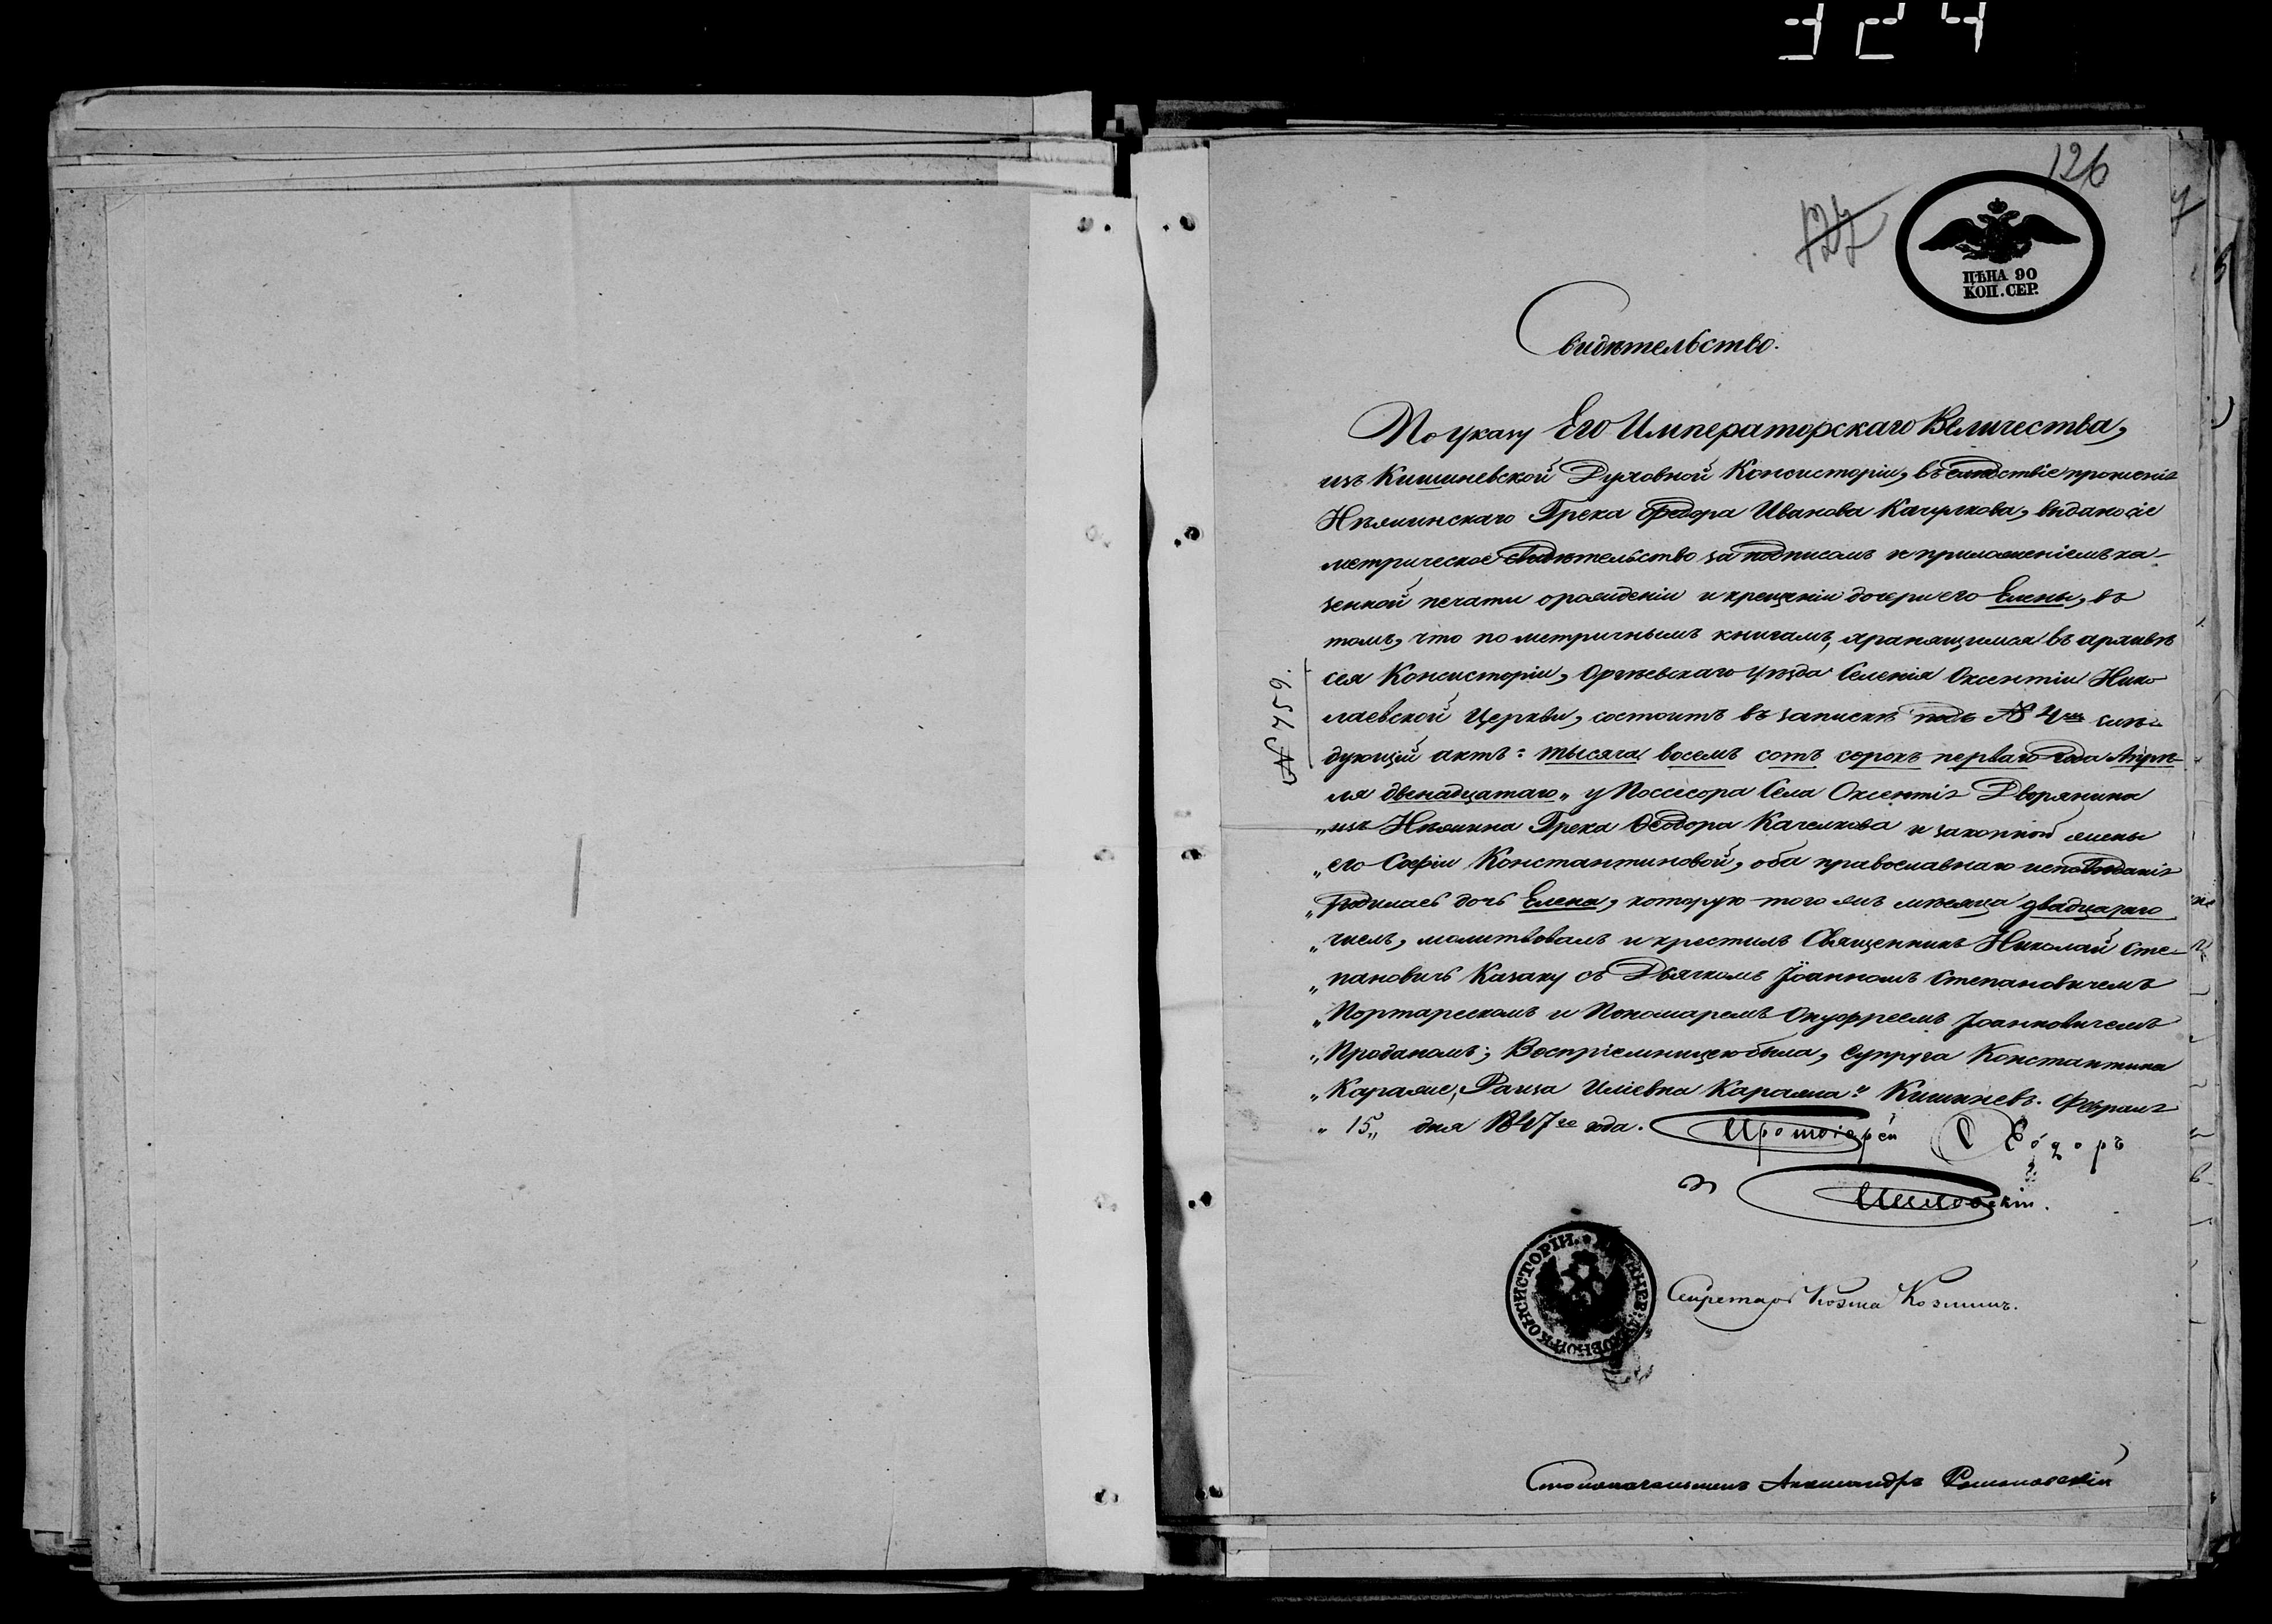 324
126
127
ЦѢНА 90
КОП. СЕР.
Свидѣтельство.
По указу Его Императорскаго Величества,
изъ Кишиневской Духовной Консисторіи, въслѣдствіе прошенія
Нѣжинскаго Грека Ѳедора Иванова Качулкова, выдано сіе
метрическое свидѣтельство за подписомъ и приложеніемъ ка-
зенной печати о рожденіи и крещеніи дочери его Елены, въ
томъ, что по метричнымъ книгамъ, хранящимся въ архивѣ
сея Консисторіи, Оргѣевскаго уѣзда Селенія Оксентіи Нико
лаевской Церкви, состоитъ въ запискѣ подъ № 4мъ слѣ-
дующій актъ: тысяча восемъ сотъ сорокъ перваго года Апрѣ-
ля двенадцатаго „ у Поссесора Села Оксентія Дворянина
„ изъ Нѣжина Грека Ѳеодора Качелкова и законной жены
„ его Софіи Константиновой, оба православнаго исповѣданія
„ родилась дочь Елена, которую того жъ мѣсяца двадцатаго
„ числъ, молитвовалъ и крестилъ Священникъ Николай Сте-
„ пановичъ Казаку съ Дьячкомъ Іоанномъ Степановичемъ
„ Портарескомъ и Пономаремъ Онуфріемъ Іоанновичемъ
„ Проданомъ; Воспріемницею была, супруга Константина
„ Караже, Раица Иліевна Каража." Кишиневъ. Февраля
„ 15 „ дня 1847го года. Протоіерей Ѳеодоръ
Секретарь Козма Козминъ.
Столоначальникъ Александръ
№ 759.
КИШИНЕВ. ДУХОВНОЙ КОНСИСТОРІИ